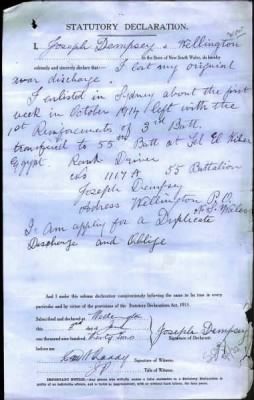 STATUTORY DECLARATION.
I, Joseph Dempsey of Wellington
in the State of New South Wales, do hereby
solemnly and sincerely declare that I lost my original
war discharge.
I enlisted in Sydney about the first
week in October 1914 left with the
1st Reinforcements of 3rd Batt.
transfered to 55th Batt at Tel El Kiber
Egypt. Rank Driver
No 1117A 55 Battalion
Joseph Dempsey
Adress Wellington P.O.
N.S. Wales
I am apply for a Duplicate
Discharge and Oblige
And I make this solemn declaration conscientiously believing the same to be true in every
particular and by virtue of the provisions of the Statutory Declarations Act, 1911.
Subscribed and declared at Wellington
this day
one thousand nine hundred
before me
Joseph Dempsey
Signature of Declarant.
Signature of Witness.
J.P.
Title of Witness.
IMPORTANT NOTICE.—Any person who wilfully makes a false statement in a Statutory Declaration is
guilty of an indictable offence, and is liable to imprisonment, with or without hard labour, for four years.